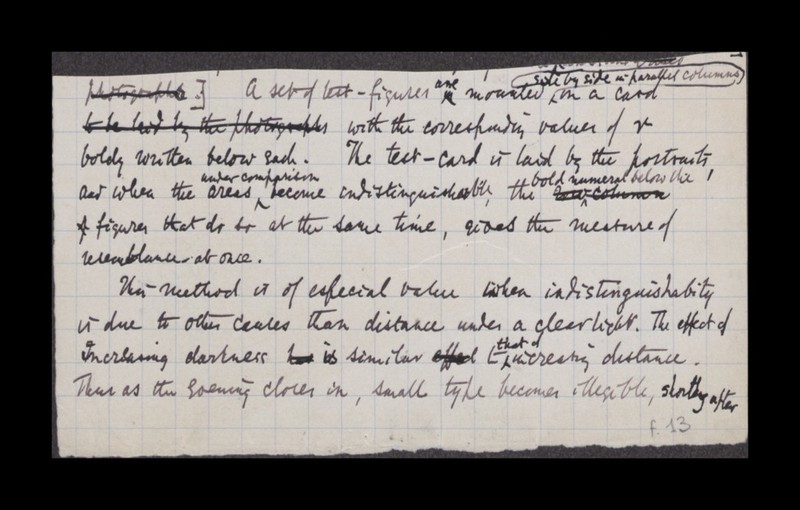 side by side in parallel columns
photographs.] A set of test-figures are mounted on a card
to be laid by the photographs with the corresponding values of r
boldly written below each. The test-card is laid by the portraits,
under comparison bold numeral below the
and when the areas become indistinguishable, the column
of figures that do so at the same time, gives the measure of
resemblance at once.
This method is of especial value when indistinguishability
is due to other causes than distance under a clear light. The effect of
that of
Increasing darkness is similar effect to increasing distance.
Thus as the evening closes in, small type becomes illegible, shortly after
f. 13